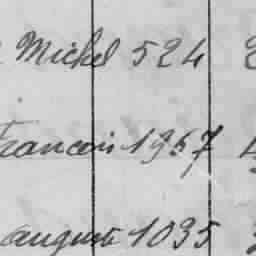 Michel 524
Francois 1957
auguste 1035